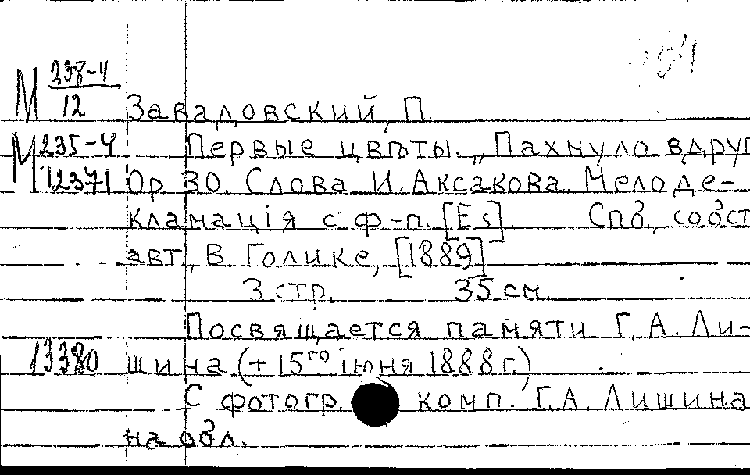 М 238-4
12 Заваловский, П
М 235-4 Первые цвѣты. „Пахнуло вдруг
12371 Ор 30. Слова И. Аксакова. Мелоде-
кламація с ф-п. [Es] Спб, собст
авт, В Голике, [1889]
3 стр. 35 см
Посвящается памяти Г. А. Ли-
13380 шина (+ 15го іюня 1888 г.)
С фотогр. комп. Г.А. Лишина
на обл.